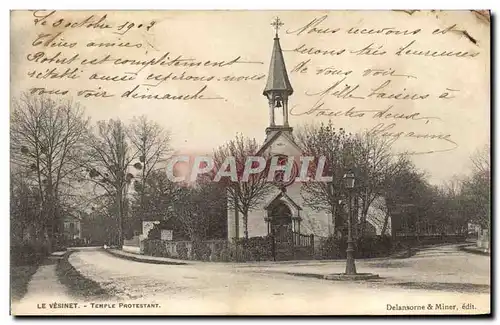 Le 8 Octobre 1903
Chères amies
Robert est complètement
rétabli aussi espérons nous
vous voir dimanche
Nous recevons et
serons très heureuses
de vous voir
Mille baisers
à toutes deux
Suzanne
CPARAMA.COM
LE VÉSINET. - TEMPLE PROTESTANT.
Delansorne & Miner, édit.